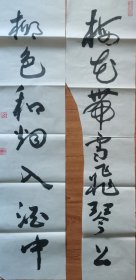 梅花带雪飞琴上
柳色和烟入酒中